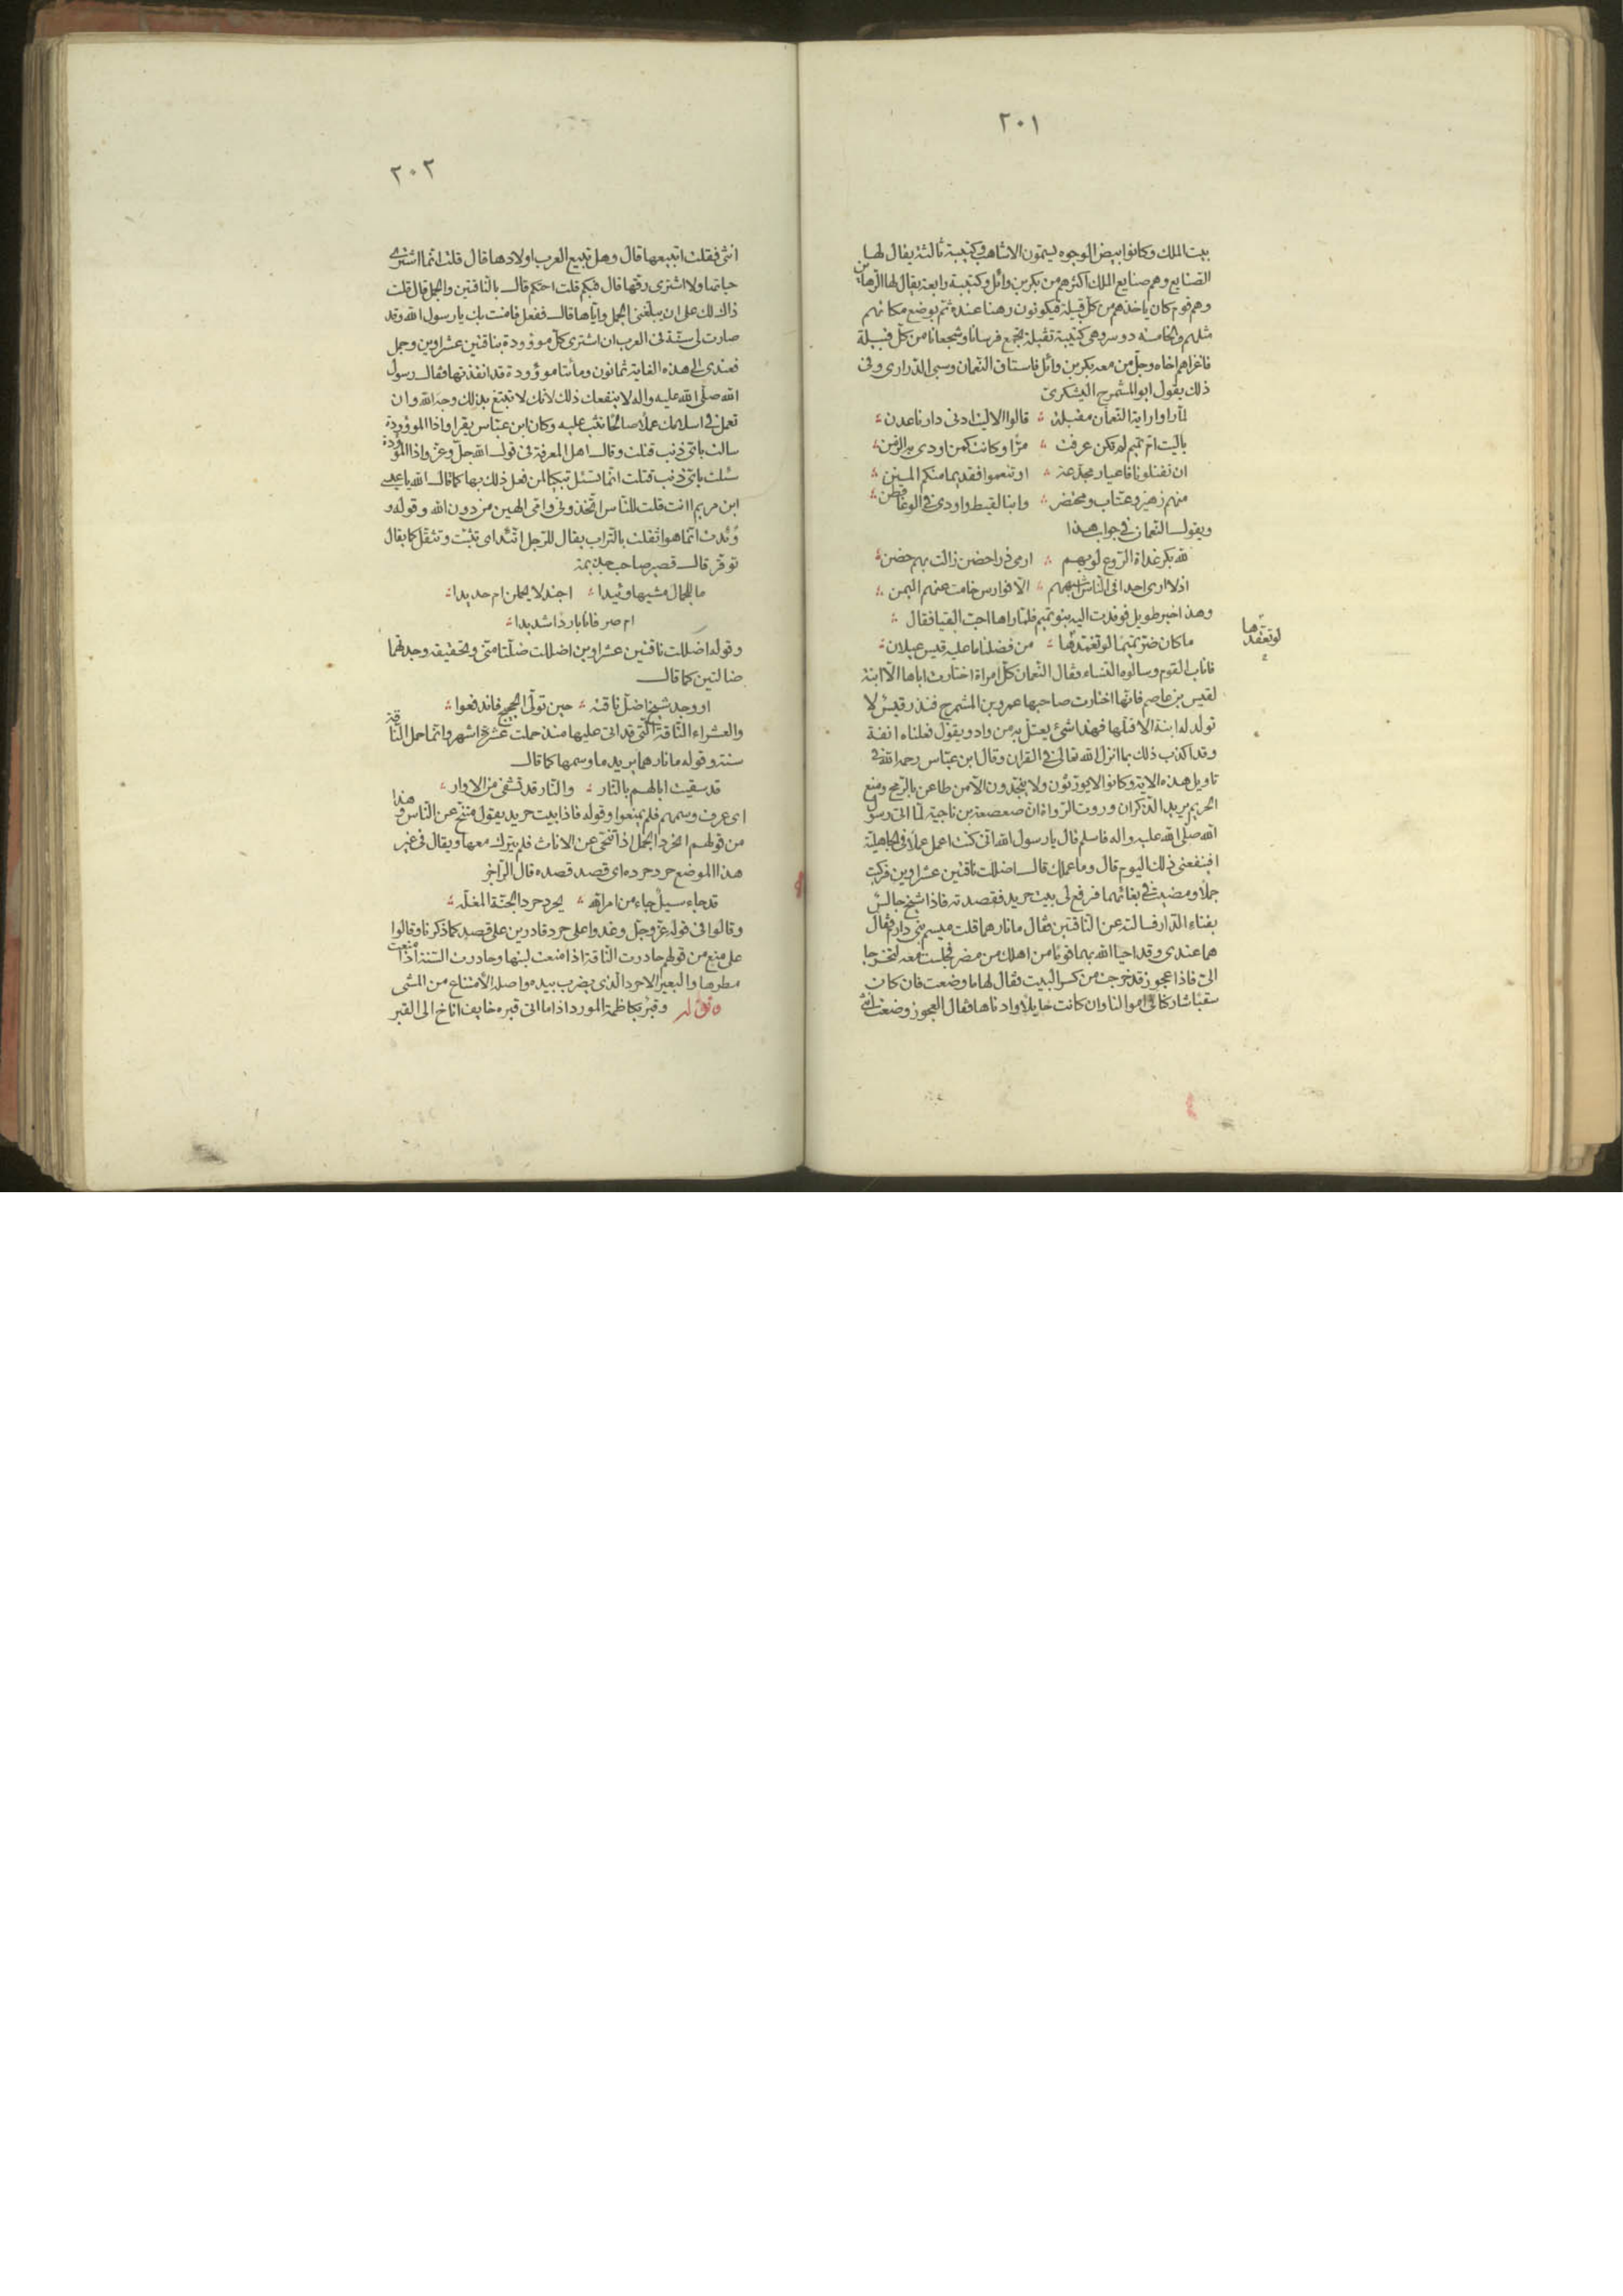 ٢٠١
بيت الملك وكانوا بيض الوجوه يسمون الاشاهب وكتيبة ثالثة يقال لها
الصنايع وهم صنايع الملك اكثرهم من بكر بن وائل وكتيبة رابعة يقال لها الرهاين
وهم قوم كان ياخذهم من كل قبيلة فيكونون رهنا عنده ثم يوضع مكانهم
مثلهم والخامسة دوسر وهي كتيبة ثقيلة تجمع فرسانا وشجعانا من كل قبيلة
فاغزاهم اخاه وجل من معه بكر بن وائل فاستاق النعمان وسبى الذرارى وفى
ذلك يقول ابو المشمرج اليشكرى
لما راوا راية النعمان مقبلة ؞ قالوا الا ليت ادنى دارنا عدن ؞
ياليت ام تميم لم تكن عرفت ؞ مرا وكانت كمن اودى به الزمن ؞
ان تقتلونا فاعيار مجدعة ؞ او تنعموا فقديما منكم المنن ؞
منهم زهير وعتاب ومحتضر ؞ وابنا لقيط واودى فى الوغا قطن ؞
ويقول النعمان فى جواب هذا
لله بكر غداة الروع لو بهم ؞ ارمى ذرا حضن زالت بهم حضن ؞
اذ لا ارى احدا فى الناس اشبههم ؞ الا فوارس خامت عنهم اليمن ؞
وهذا خبر طويل فوفدت اليه بنو تميم فلما راها احب البقيا فقال ؞
ما كان ضر تميما لو تغمدها ؞ من فضلنا ما عليه قيس عيلان ؞
لو تعمّدها
فاناب القوم وسالوه النساء فقال النعمان كل امراة اختارت اباها الا ابنة
لقيس بن عاصم فانها اختارت صاحبها عمرو بن المشمرج فنذر قيس لا
تولد له ابنة الا قتلها فهذا شئ يعتل به من واد ويقول فعلناه انفة
وقد اكذب ذلك بما انزل الله تعالى فى القران وقال ابن عباس رحمه الله فى
تاويل هذه الاية وكانوا لا يورثون ولا يتخذون الا من طاعن بالرمح ومنع
الحريم يريد الذكران وروت الرواة ان صعصعة بن ناجية لما اتى رسول
الله صلى الله عليه واله فاسلم قال يا رسول الله انى كنت اعمل عملا فى الجاهلية
افينفعنى ذلك اليوم قال وما عملك قال اضللت ناقتين عشراوين فركبت
جملا ومضيت فى بغائهما فرفع لى بيت حريد فقصدته فاذا شيخ جالس
بفناء الدار فسالته عن الناقتين فقال ما نارهما قلت ميسم بنى دارم فقال
هما عندى وقد احيا الله بهما قوما من اهلك من مضر فجلست معه لتخرجا
الى فاذا عجوز قد خرجت من كسر البيت فقال لها ما وضعت فان كان
سقبا شاركنا فى اموالنا وان كانت حايلا وادناها فقال العجوز وضعت انثى
٢٠٢
انثى فقلت اتبيعها قال وهل تبيع العرب اولادها قال قلت انما اشترى
حياتها ولا اشترى رقها قال فبكم قلت احتكم قال بالناقتين والجمل قال قلت
ذاك لك على ان يبلغنى الجمل واياها قال ففعل فامنت بك يا رسول الله وقد
صارت لى سنة فى العرب ان اشترى كل موؤودة بناقتين عشراوين وجمل
فعندى الى هذه الغاية ثمانون ومائتا موؤودة قد انقذتها فقال رسول
الله صلى الله عليه واله لا ينفعك ذلك لانك لا تبتغ بذلك وجه الله وان
تعمل فى اسلامك عملا صالحا تثب عليه وكان ابن عباس يقرا واذا الموؤودة
سالت باى ذنب قتلت وقال اهل المعرفة فى قول الله جل وعز واذا الموؤدة
سئلت باى ذنب قتلت انما تسئل تبكيتا لمن فعل ذلك بها كما قال الله يا عيسى
ابن مريم اانت قلت للناس اتخذونى وامى الهين من دون الله وقوله و
وئدت انما هو اثقلت بالتراب يقال للرجل اتئد اى تثبت وتثقل كما يقال
توقر قال قصير صاحب جذيمة
ما للجمال مشيها وئيدا ؞ اجندلا يحملن ام حديدا ؞
ام صرفانا باردا شديدا ؞
وقوله اضللت ناقتين عشراوين اضللت ضلتا منى وتحقيقه وجدتهما
ضالتين كما قال
او وجد شيخ اضل ناقته ؞ حين تولى الحجيج فاندفعوا ؞
والعشراء الناقة التى قد اتى عليها منذ حملت عشرة اشهر وانما حمل الناقة
سنة وقوله ما نارهما يريد ما وسمها كما قال
قد سقيت ابالهم بالنار ؞ والنار قد تشفى من الاوار ؞
اى عرف وسمهم فلم يمنعوا وقوله فاذا بيت حريد يقول متنح عن الناس وهذا
من قولهم انحرد الجمل اذا تنحى عن الاناث فلم يبرك معها ويقال فى غير
هذا الموضع حرد حرده اى قصد قصده قال الراجز
قد جاء سيل جاء من امر الله ؞ يحرد حرد الجنة المغله ؞
وقالوا فى قوله عز وجل وغدوا على حرد قادرين على قصد كما ذكرنا وقالوا
على منع من قولهم حاردت الناقة اذا منعت لبنها وحاردت السنة اذا منعت
مطرها والبعير الاحرد الذى يضرب بيده واصله الامتناع من المشى
وقوله وقبر بكاظمة المورد اذا ما اتى قبره خايف اناخ الى القبر